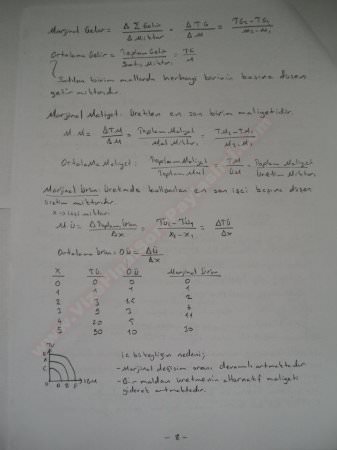 Marjinal Gelir = Δ Σ Gelir / Δ Miktar = Δ T.G / Δ M = TG2 - TG1 / M2 - M1
Ortalama Gelir = Toplam Gelir / Satış Miktarı = TG / M
Satılan birim mallarda herhangi birinin başına düşen
gelir miktarıdır.
Marjinal Maliyet: Üretilen en son birim maliyetidir
M.M = ΔT.M / ΔM = Toplam Maliyet / Mal Miktarı = TM2 - TM1 / M2 - M1
Ortalama Maliyet: Toplam Maliyet / Toplam Mal = TM / M = Toplam Maliyet / Üretim Miktarı
Marjinal Ürün: Üretimde kullanılan en son işçi başına düşen
üretim miktarıdır.
x → işçi miktarı
M.Ü = Δ Toplam Ürün / Δx = TÜ2 - TÜ1 / x2 - x1 = ΔTÜ / Δx
Ortalama Ürün: O.Ü = ΔÜ / Δx
X T.Ü. O.Ü Marjinal Ürün
0 0 0 0
1 1 1 1
2 3 1.5 2
3 9 3 6
4 20 5 11
5 50 10 30
İç bükeyliğin nedeni;
- Marjinal değişim oranı devamlı artmaktadır
- Bir maldan üretmenin alternatif maliyeti
giderek artmaktadır.
- 8 -